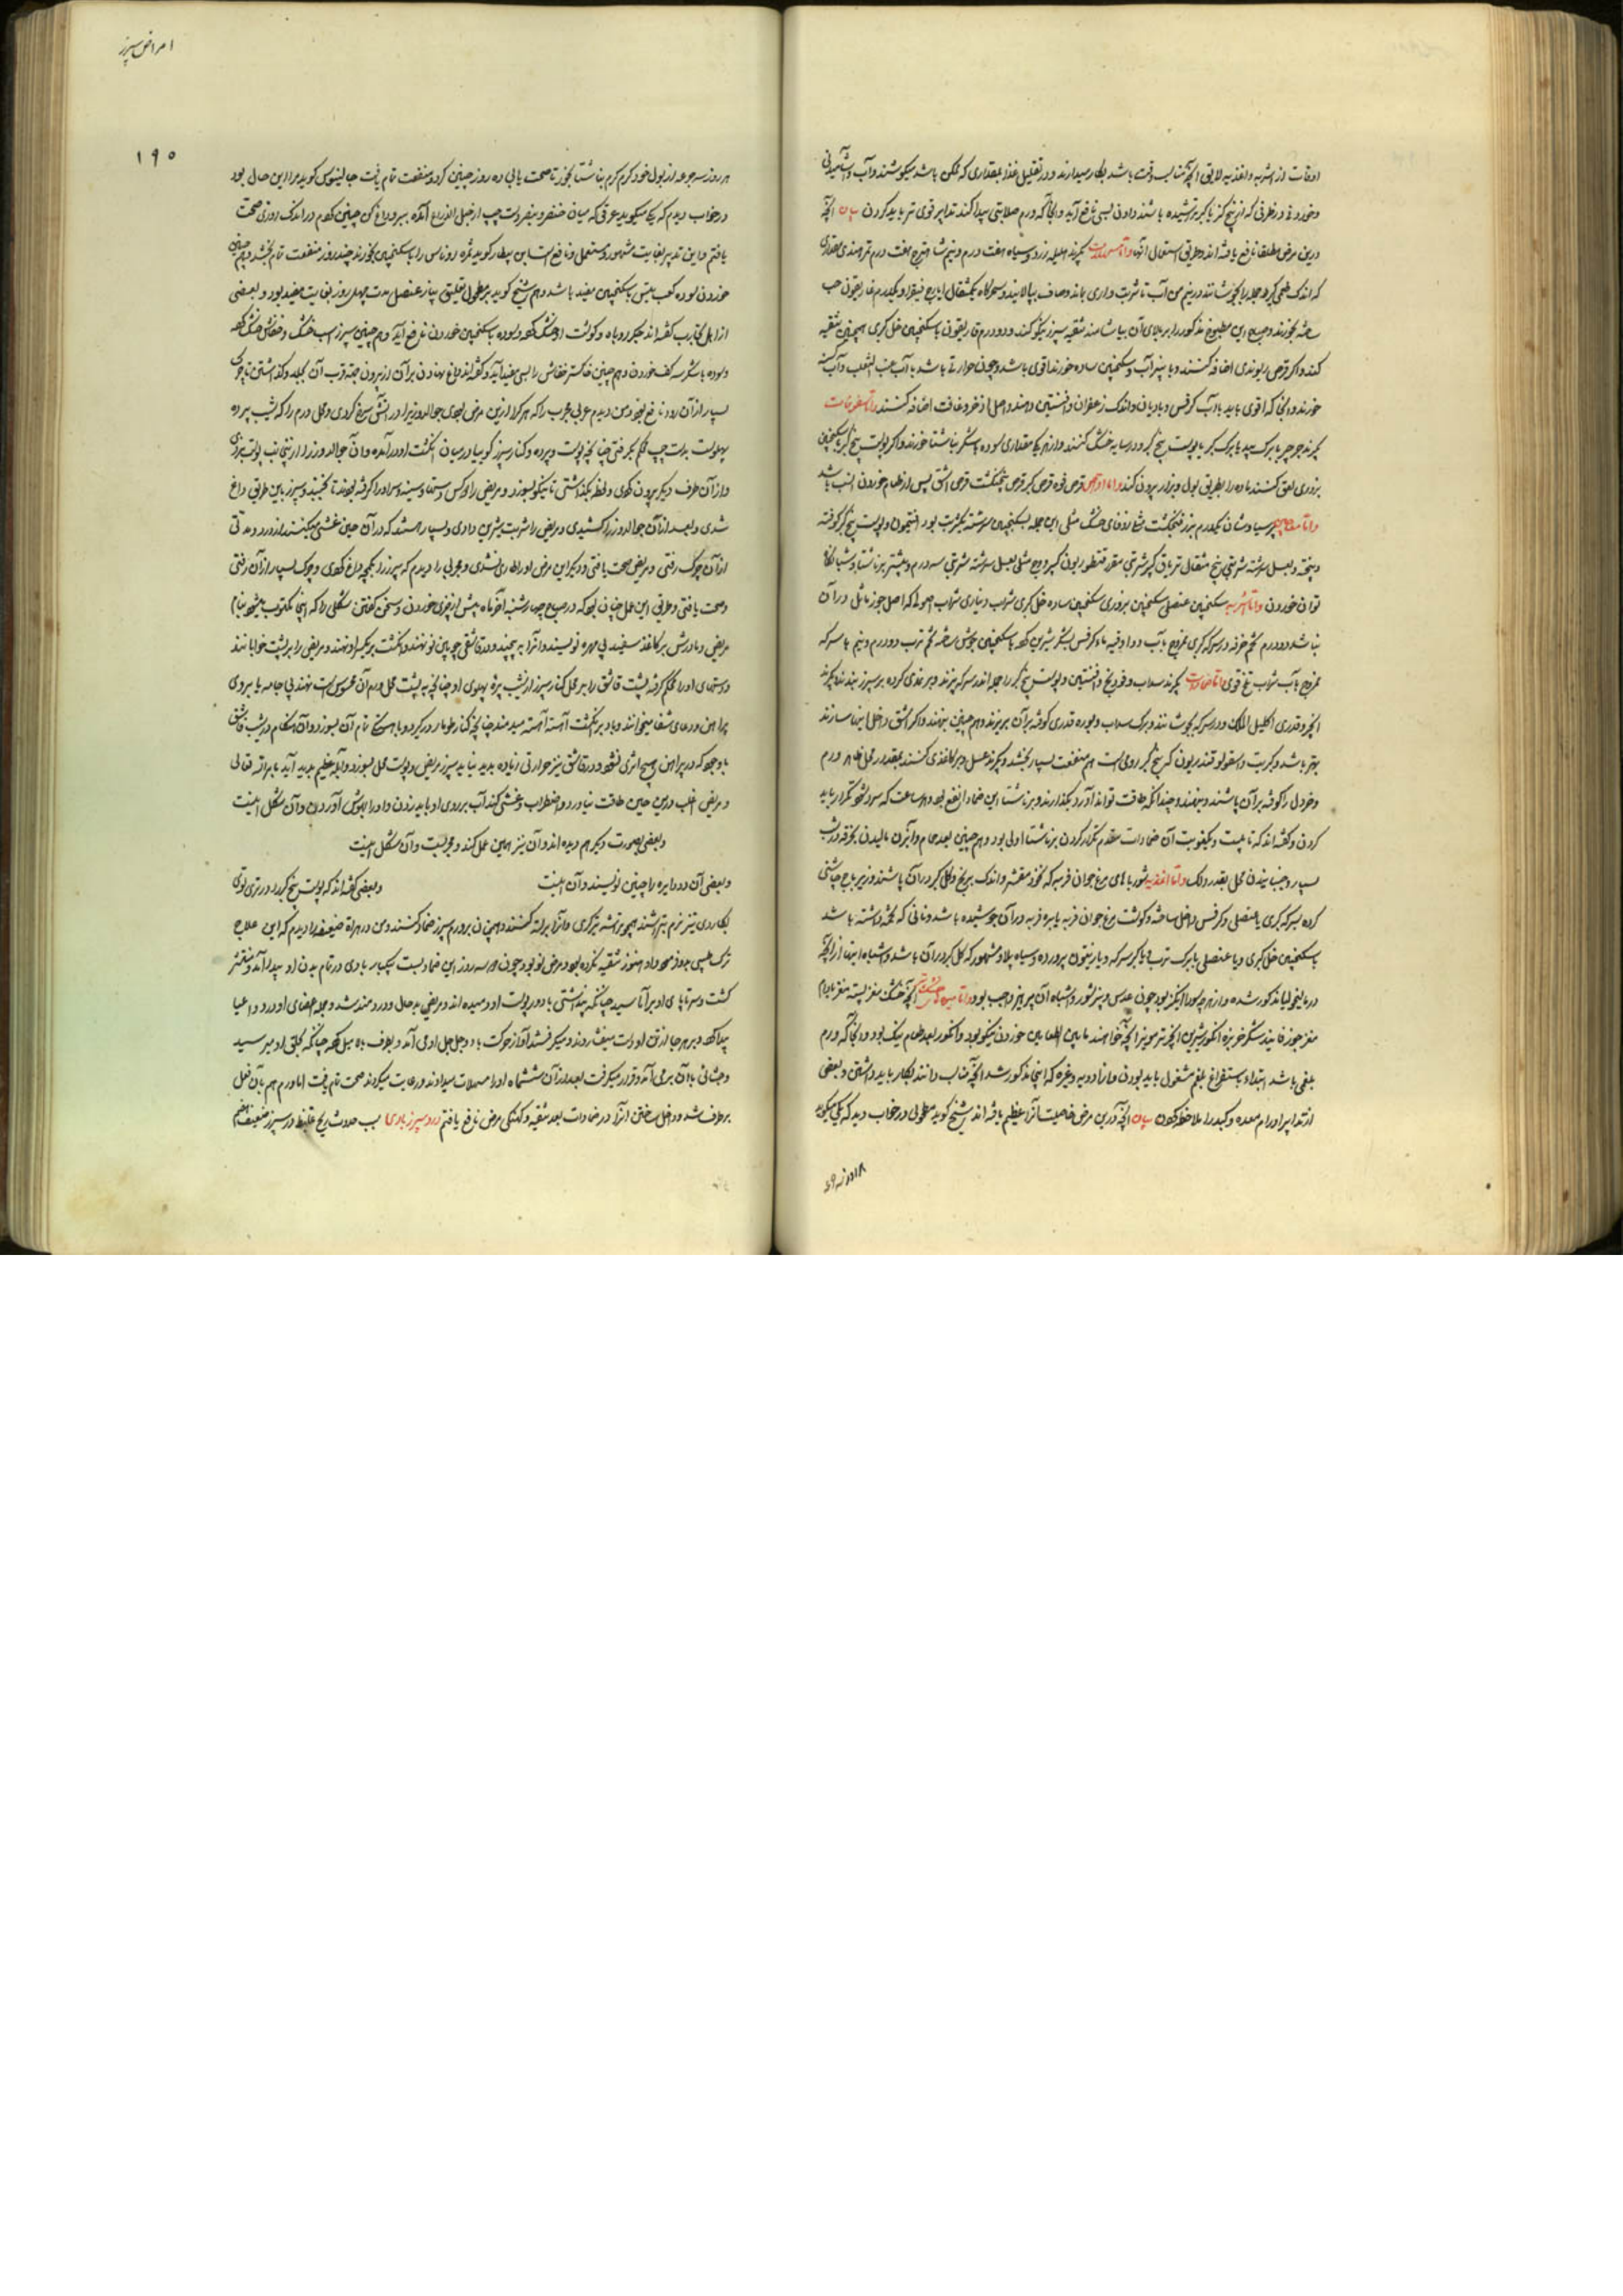 اوقات از اشربه و اغذیه لایق آنچه مناسب وقت باشد بکار میدارند و در تقلیل غذا بمقداری که ممکن باشد میکوشند و آب و آشامیدنی
و خوردنی در ظرفی که از بیخ کز یا کبر تراشیده باشند دادن بسی نافع آید و آنجا که ورم صلابتی پیدا کند تدابیر قوی تر باید کردن بیان آنچه
درین مرض مطلقا نافع یافته اند و طریق استعمال آنها و اما مسهلات بگیرند هلیله زرد و سیاه هفت درم و نیم شاهترج هفت درم تمر هندی مقداری
که اندک طعمی گیرد جمله را بجوشانند در نیم من آب تا شربت واری بماند و صاف بپالایند و سحرگاه یکمثقال ایارج فیقرا و یکدرم غاریقون حب
ساخته بخورند و صبح این مطبوخ مذکور را بر بالای آن بیاشامند تنقیه سپرز نیکو کند و دو درم غاریقون با سکنجبین خل کبری همچنین تنقیه
کند و اگر قرص ریوندی اضافه کنند و با پنیر آب و سکنجبین ساده خورند اقوی باشد و چون حرارتی باشد با آب عنب الثعلب و آب کسنه
خورند و آنجا که اقوی باید با آب کرفس و بادیان و اندک زعفران و افسنتین دهند و اصل اذخر و غافت اضافه کنند و اما سفوفات
بگیرند جرجیر یا برگ بید یا برگ کبر یا پوست بیخ کبر و در سایه خشک کنند و از هر یک مقداری سوده با شکر بناشتا خورند و اگر پوست بیخ کبر با سکنجبین
بزوری لعق کنند ماده را بطریق بول و براز بیرون کند و اما اقراص قرص فوه قرص کبر قرص پنجنگشت قرص اشق پس از طعام خوردن انسب باشد
و اما معاجین پرسیاوشان یکدرم بزر فنجنکشت مثله زوفای خشک مثلی این جمله بسکنجبین سرشته یکشربت بود افتیمون و پوست بیخ کبر کوفته
و پخته و بعسل سرشته شربتی پنج مثقال تریاق کبیر شربتی مقرر قنطوریون کبیر و وج مثلی بعسل سرشته شربتی سه درم و بیشتر برناشتا و شبانگاه
توان خوردن و اما اشربه سکنجبین عنصلی سکنجبین بزوری سکنجبین ساده خل کبری شراب دیناری شراب اصولی که اصل جوز ماثل در آن
نباشد دو درم تخم خرفه در سرکه کبری ممزوج بآب دو اوقیه ماء کرفس بشکر شیرین کرده با سکنجبین جوش ساخته تخم ترب دو درم و نیم با سرکه
ممزوج بآب شراب تلخ قوی و اما ضمادات بگیرند سداب و فودنج و افسنتین و پوست بیخ کبر را جمله اندر سرکه پزند و بر نمدی کرده بر سپرز بندند بگیرند
انجیر و قدری اکلیل الملک و در سرکه بجوشانند و برگ سداب و بوره قدری کوفته برآن بریزند و هم چنین بنهند و اگر اشق داخل اینها سازند
بهتر باشد و کبریت و اسقولوقندریون که بیخ کبر رومی است هم منفعت بسیار بخشد و بگیرند عسل و بر کاغذی کنند بمقدار محل ظاهر ورم
و خردل را کوفته بر آن پاشند و بنهند و چندانکه طاقت تواند آورد بگذارند و برناشتا این ضماد انفع بود و هر ساعت که سرد شود تکرار باید
کردن و گفته اند که تا بیست و یکنوبت آن ضمادات مقدم تکرار کردن برناشتا اولی بود و هم چنین بعد حمام و آبزن مالیدن بخرقه درشت
بسیار و جنبانیدن محل بقدر دلک و اما اغذیه شورباهای مرغ جوان فربه که نخود مقشر و اندک برنج و گل کبر در آن پاشند و زیرباج چاشنی
کرده بسرکه کبری یا عنصلی و کرفس داخل ساخته و گوشت مرغ جوان فربه یا بره فربه در آن جوشیده باشد و نانی که تخمه داشته باشد
با سکنجبین خل کبری و یا عنصلی یا برگ ترب یا کبر سرکه و یا زیتون پرورده و سیاه پلاو مشهور که گل کبر در آن باشد و اشباه اینها از آنچه
در مالیخولیا مذکور شده و از هر چه سودا انگیز بود چون عدس و پنیر شور و اشباه آن پرهیز واجب بود و اما میوه تر و خشک آنچه خشک مغز پسته مغز بادام
مغز جوز فانید شکر خربزه انگور شیرین انجیر تر مویز آنچه خواهند مابین الطعامین خوردن نیکو بود و انگور بعد طعام نیک بود و آنجا که ورم
بلغمی باشد ابتدا باستفراغ بلغم مشغول باید بودن و از ادویه و غیره که اینجا مذکور شد آنچه مناسب دانند بکار باید داشتن و بعضی
از تدابیر اورام معده و کبد را ملاحظه کردن بیان آنچه درین مرض خاصیت آنرا عظیم یافته اند شیخ گوید مطحولی در خواب دید که یکی میگوید
امراض سپرز
۱۹۵
هر روز سه جرعه از بول خود گرم گرم بناشتا بخور تا صحت یابی ده روز چنین کرد و منفعت تمام یافت جالینوس گوید مرا این حال بود
در خواب دیدم که یکی میگوید عرقی که میان خنصر و بنصر دست چپ از حبل الذراع آمده ببر و داغ کن چنین کردم در اندک روزی صحت
یافتم و این تدبیر بغایت مشهور و مستعمل و نافع است ابن بیطار گوید ثمره روناس را با سکنجبین بخورند چند روز منفعت تمام بخشد و هم چنین
خوردن سوده کعب بیش با سکنجبین مفید باشد و هم شیخ گوید بر مطحول تعلیق پیاز عنصل مدت چهل روز بغایت مفید بود و بعضی
از اهل تجارب گفته اند جگر روباه و گوشت او خشک کرده و سوده با سکنجبین خوردن نافع آید و هم چنین سپرز اسب خشک و خفاش خشک کرده
و سوده با شکر سه کف خوردن و هم چنین خاکستر خفاش را بسی مفید آید و گفته اند داغ نهادن بر آن از بیرون جهة قرب آن بجلد و گذاشتن تا چرک
بسیار از آن رود نافع بود و من دیدم عربی مجرب را که هر کرا ازین مرض بودی جوالدوز را در آتش سرخ کردی و محل ورم را که شیب پرده
پهلوست بدست چپ محکم بگرفتی چنانچه پوست و پرده و کنار سپرز گویا در میان انگشت او در آمده و آن جوالدوز را ازین جانب پوست بردی
و از آن طرف دیگر بیرون کردی و لحظه بگذاشتی تا نیکو بسوزد و مریض را دو کس دستها و سینه و سر او را گرفته بودند تا نجنبد و سپرز باین طریق داغ
شدی و بعد از آن جوالدوز را کشیدی و مریض را شربت شیرین دادی و بسیار هست که در آن حین غشی میکنند از درد و مدتی
از آن چرک رفتی و مریض صحت یافتی و دیگر این مرض او را طاری نشدی و مجربی را دیدم که سپرز را بکمچه داغ کردی و چرک بسیار از آن رفتی
و صحت یافتی و طریق این عمل چنان بود که در صباح چهارشنبه آخر ماه پیش از چیزی خوردن و سخن گفتن شکلی را که اینجا مکتوب میشود بنام
مریض و مادرش بر کاغذ سفید بی مهره نویسند و آنرا بپیچند و در قاشقی چوبین نو نهند و انگشت بر یکسر او نهند و مریض را بر پشت خوابانند
و دستهای او را محکم گرفته پشت قاشق را بر محل کنار سپرز از شیب پرده پهلوی او چنانچه پشت محل ورم آن محسوس است نهند بی جامه یا بر وی
پیراهن و دعای شفا میخوانند و باد بر انگشت آهسته آهسته میدمند چنانچه کنار طومار در گیرد و باهستگی تمام آن بسوزد و آن هنگام در شیب قاشق
باوجود که در پیراهن هیچ اثری نشود و در قاشق نیز حرارتی زیاده پدید نیاید سپرز مریض و پوست محل بسوزد و آبله عظیم پدید آید بامر الله تعالی
و مریض اغلب درین حین طاقت نیاورد و اضطراب و غشی کند آب بر روی او باید زدن و او را بهوش آوردن و آن شکل اینست
و بعضی بصورت دیگر هم دیده اند و آن نیز همین عمل کند و مجربست و آن شکل اینست
و بعضی آن دو دایره را چنین نویسند و آن اینست و بعضی گفته اند که پوست بیخ کبر را در تری توی
بکاردی تیز نرم بتراشند همچو تراشه تیرگری و آنرا بر لته کنند و همچنان بر ورم سپرز ضماد کنند و من در هراة ضعیفه را دیدم که این علاج
ترک طبیبی مجوز مجرد داد هنوز تنقیه نکرده بود و مرض نو بود چون دو سه روز این ضماد بست یکبار بادی در تمام بدن او پیدا آمد و منتشر
گشت و سر تا پای او برآماسید چنانکه پنداشتی باد در پوست او دمیده اند و مریض بد حال و دردمند شد و جمله اعضای او درد و اعیا
پیدا کرد و بر هر جا از تن او دست میفشردند و میگرفتند آواز حرکت باد و جل جل او می آمد و بطرف بالا میل کرد چنانکه بحلق او میرسید
و جشائی با آن بر می آمد و قرار میگرفت بعد از آن ششماه او را مسهلات میدادند و رعایت میکردند صحت تام یافت اما ورم هم بآن فعل
برطرف شد و داخل ساختن آنرا در ضمادات بعد تنقیه و کهنگی مرض نافع یافتم درد سپرز بادی سبب حدوث ریح غلیظ در سپرز ضعف هضم